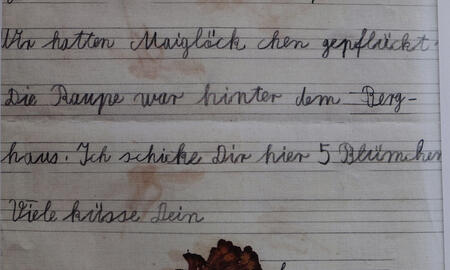 Wir hatten Maiglöck chen gepflückt.
Die Raupe war hinter dem Berg-
haus. Ich schicke Dir hier 5 Blümchen
Viele küsse Dein